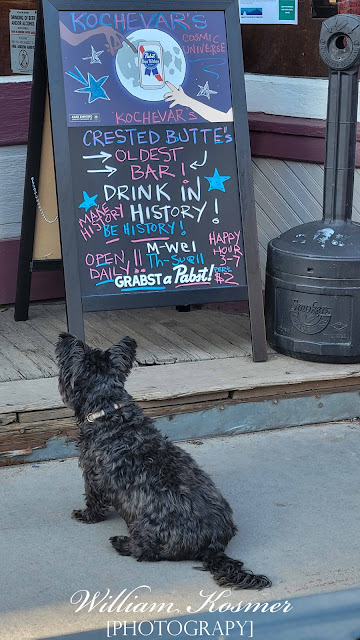 KOCHEVAR'S
COSMIC
UNIVERSE
Pabst
Blue Ribbon
KOCHEVAR'S
CRESTED BUTTE'S
OLDEST
BAR!
DRINK IN
HISTORY!
MAKE
HISTORY
BE HISTORY!
OPEN
DAILY!!
HAPPY
HOUR
3-7
$2
GRABST a Pabst!
William Kosmer
[PHOTOGRAPY]